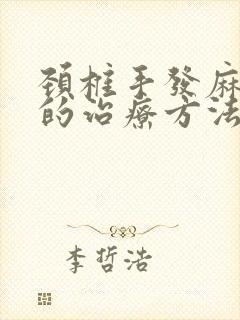 頚椎手發麻
的治療方法
李哲浩